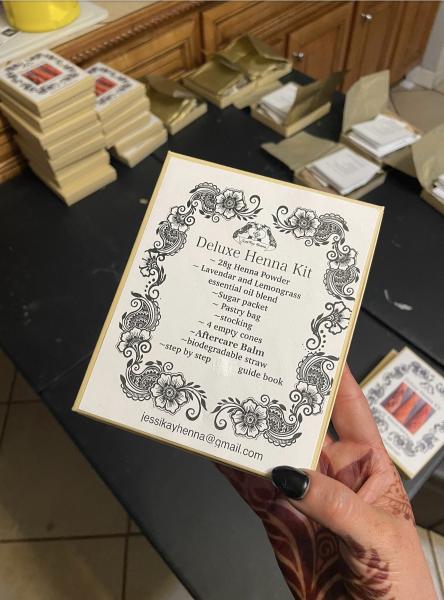 Deluxe Henna Kit
~ 28g Henna Powder
~ Lavendar and Lemongrass
essential oil blend
~Sugar packet
~ Pastry bag
~stocking
~ 4 empty cones
~Aftercare Balm
~biodegradable straw
~step by step guide book
jessikayhenna@gmail.com